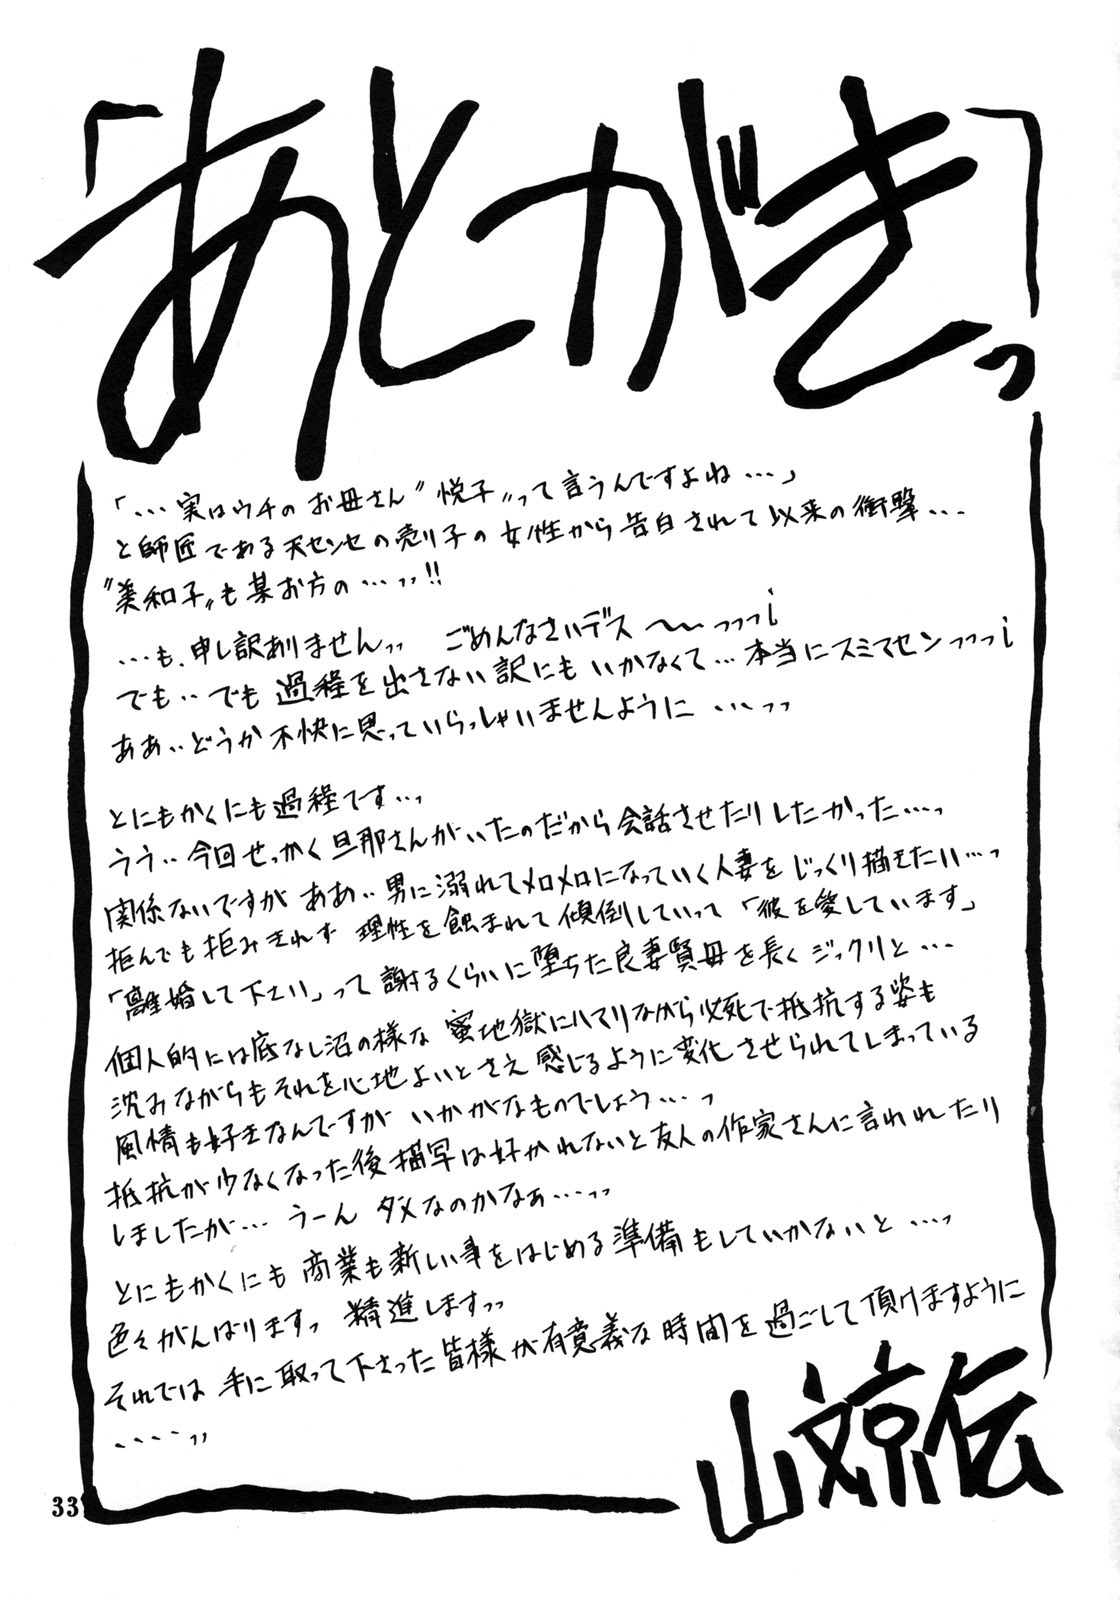 「あとがきっ」
「…実はウチのお母さん〝悦子〟って言うんですよね…」
と師匠である天センセの売り子の女性から告白されて以来の衝撃…
〝美和子〟も某お方の…ッッ!!
…も、申し訳ありませんッッ ごめんなさいデス〜〜っっっ¡
でも‥でも過程を出さない訳にもいかなくて…本当にスミマセンっっっ¡
ああ‥どうか不快に思っていらっしゃいませんように…っっ
とにもかくにも過程です…っ
うう‥今回せっかく旦那さんがいたのだから会話させたりしたかった…っ
関係ないですがああ‥男に溺れてメロメロになっていく人妻をじっくり描きたい…っ
拒んでも拒みきれず理性を蝕まれて傾倒していって「彼を愛しています」
「離婚して下さい」って謝るくらいに堕ちた良妻賢母を長くジックリと…
個人的には底なし沼の様な蜜地獄にハマりながら必死で抵抗する姿も
沈みながらもそれを心地よいとさえ感じるように変化させられてしまっている
風情も好きなんですがいかがなものでしょう…っ
抵抗が少なくなった後描写は好かれないと友人の作家さんに言われたり
しましたが…うーんダメなのかなぁ…っっ
とにもかくにも商業も新しい事をはじめる準備もしていかないと…っ
色々がんばりますっ 精進しますっっ
それでは手に取って下さった皆様が有意義な時間を過ごして頂けますように
‥‥‥っっ
山文京伝
33